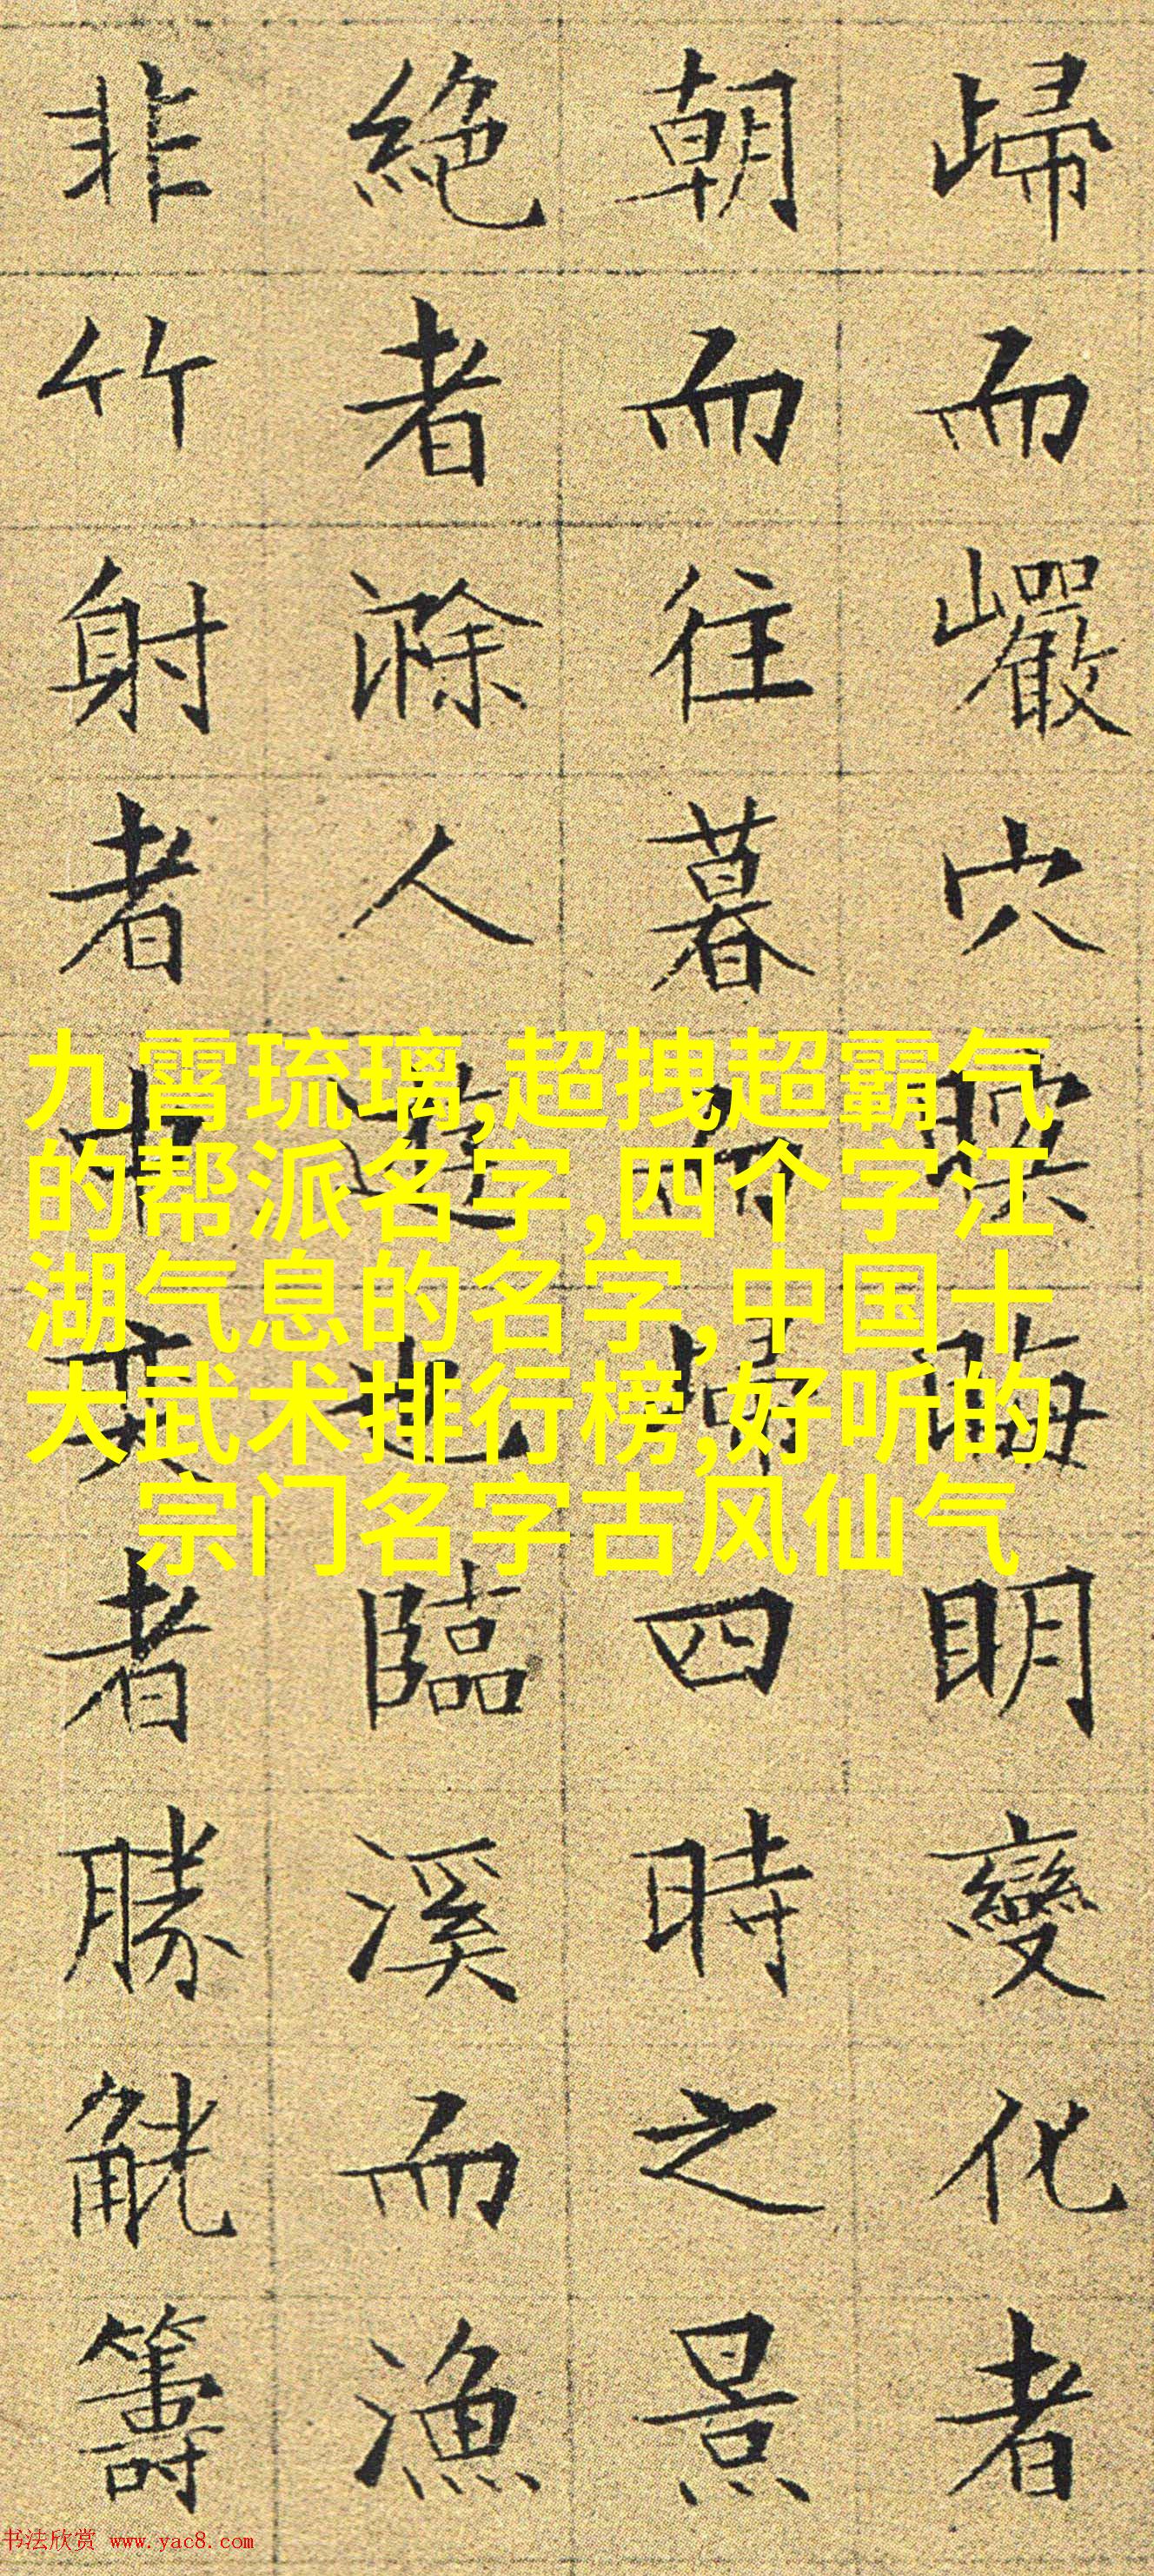 歸而巗穴暝晦明變化者
朝而往暮而歸四時之景
絕者滁人遊也臨溪而漁
非竹射者中奕者勝觥籌
九霄琉璃,超拽超霸气
的帮派名字,四个字江
湖气息的名字,中国十
大武术排行榜,好听的
宗门名字古风仙气
书法欣赏 www.yac8.com